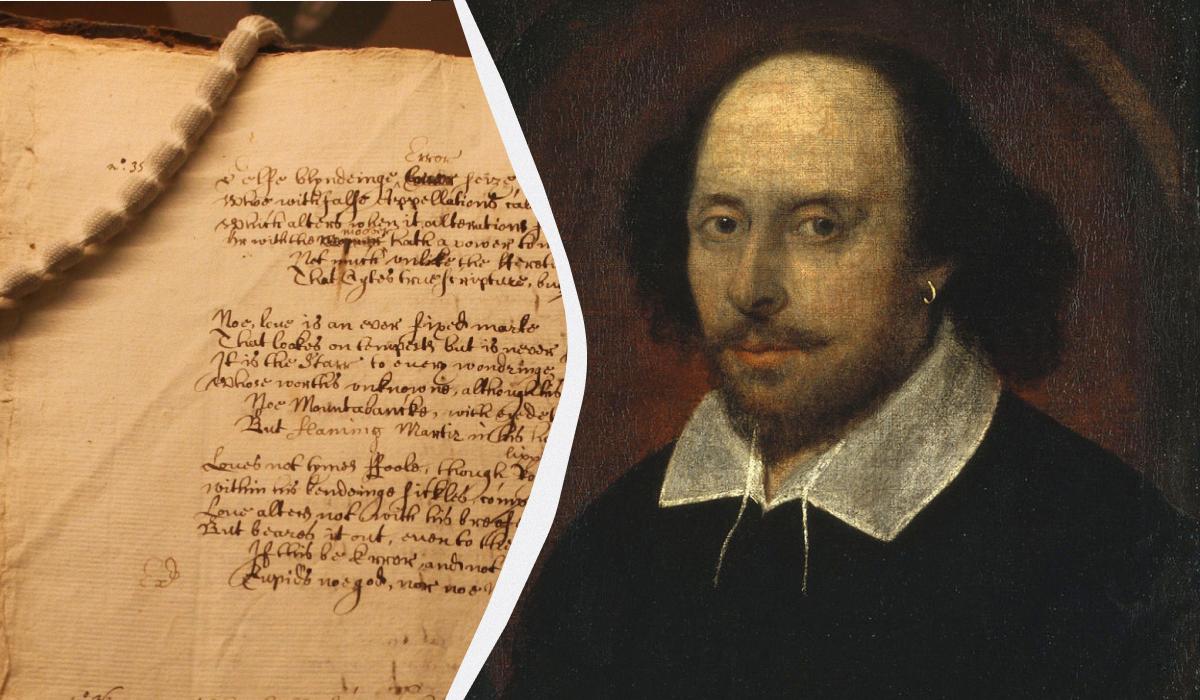 Error
n.º 35
Selfe blyndeinge, Error seize
Who with false Appellations cal
Which alters when it alterations
mover
Or with the hath a power to m
Not much vnlike the Heret
That Cytes true scripture, bu
Noe, loue is an ever fixed marke
That lookes on tempests but is never
It is the Starr to every wondringe
Whose worth's vnknowne, although his
Noe Mountabancke, with eye de
But flaming Martir in his ho
lipp
Loues not tymes Foole, though Ro
within his bendeinge sickles comp
Loue alters not with his breef
But beares it out, even to the
If this be Error and not
Cupids noe god, nor noe